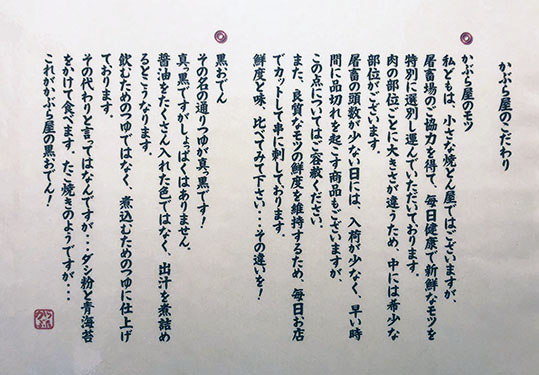 かぶら屋のこだわり
かぶら屋のモツ
私どもは、小さな焼どん屋ではございますが、
屠畜場のご協力を得て、毎日健康で新鮮なモツを
特別に選別し運んでいただいております。
肉の部位ごとに大きさが違うため、中には希少な
部位がございます。
屠畜の頭数が少ない日には、入荷が少なく、早い時
間に品切れを起こす商品もございますが、
この点についてはご容赦ください。
また、良質なモツの鮮度を維持するため、毎日お店
でカットして串に刺しております。
鮮度と味、比べてみて下さい・・・その違いを!
黒おでん
その名の通りつゆが真っ黒です!
真っ黒ですがしょっぱくはありません。
醤油をたくさん入れた色ではなく、出汁を煮詰め
るとこうなります。
飲むためのつゆではなく、煮込むためのつゆに仕上げ
ております。
その代わりと言ってはなんですが・・・ダシ粉と青海苔
をかけて食べます。たこ焼きのようですが・・・
これがかぶら屋の黒おでん!